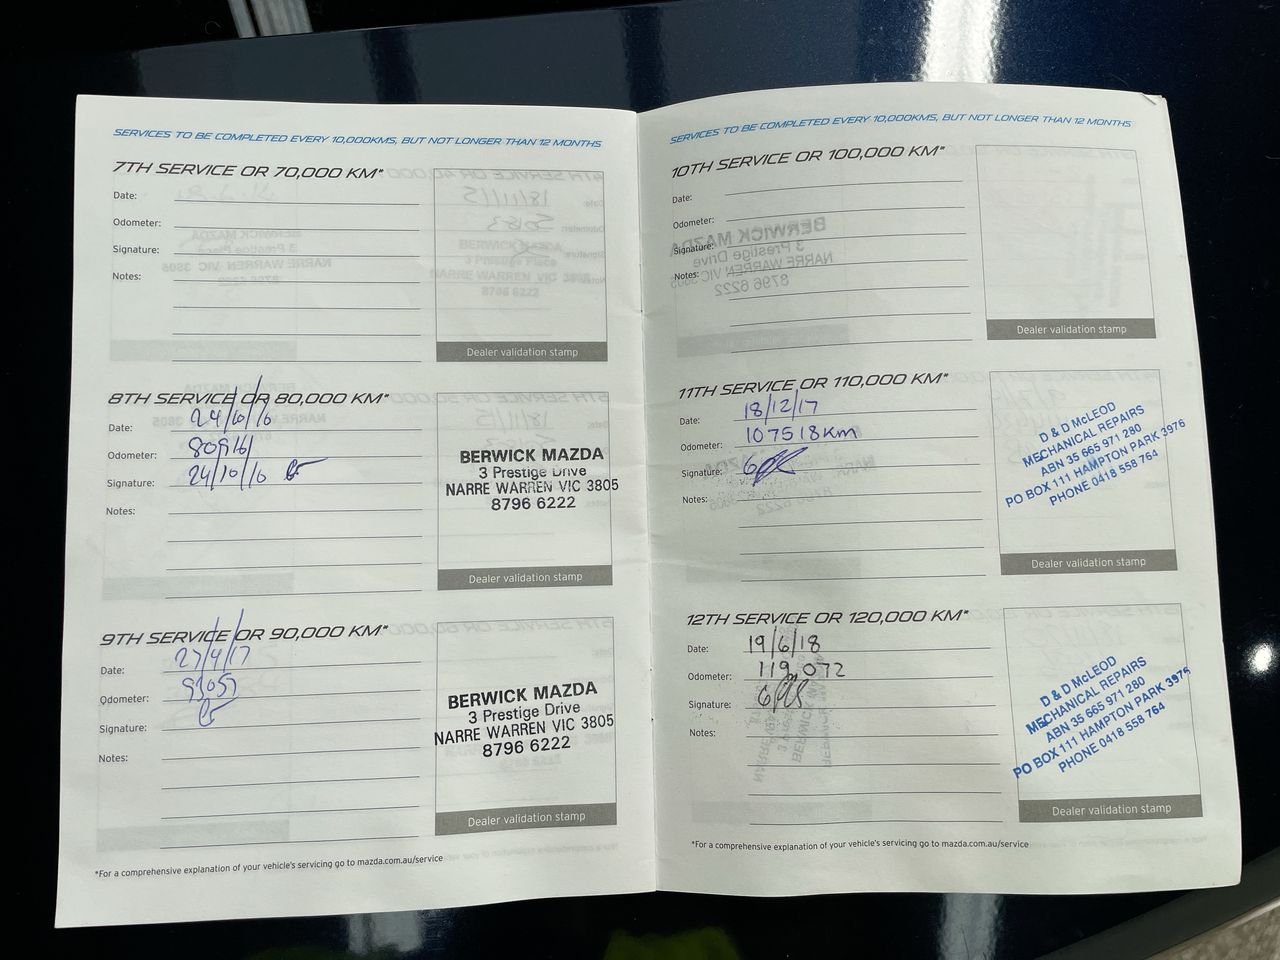 SERVICES TO BE COMPLETED EVERY 10,000KMS, BUT NOT LONGER THAN 12 MONTHS
7TH SERVICE OR 70,000 KM*
Date:
Odometer:
Signature:
Notes:
Dealer validation stamp
8TH SERVICE OR 80,000 KM*
Date: 24/10/16
Odometer:
Signature: 24/10/16
Notes:
BERWICK MAZDA
3 Prestige Drive
NARRE WARREN VIC 3805
8796 6222
Dealer validation stamp
9TH SERVICE OR 90,000 KM*
Date: 27/4/17
Odometer:
Signature:
Notes:
BERWICK MAZDA
3 Prestige Drive
NARRE WARREN VIC 3805
8796 6222
Dealer validation stamp
*For a comprehensive explanation of your vehicle's servicing go to mazda.com.au/service
SERVICES TO BE COMPLETED EVERY 10,000KMS, BUT NOT LONGER THAN 12 MONTHS
10TH SERVICE OR 100,000 KM*
Date:
Odometer:
Signature:
Notes:
Dealer validation stamp
11TH SERVICE OR 110,000 KM*
Date: 18/12/17
Odometer: 107518Km
Signature:
Notes:
D & D McLEOD
MECHANICAL REPAIRS
ABN 35 665 971 280
PO BOX 111 HAMPTON PARK 3976
PHONE 0418 558 764
Dealer validation stamp
12TH SERVICE OR 120,000 KM*
Date: 19/6/18
Odometer: 119,072
Signature:
Notes:
D & D McLEOD
MECHANICAL REPAIRS
ABN 35 665 971 280
PO BOX 111 HAMPTON PARK 3976
PHONE 0418 558 764
Dealer validation stamp
*For a comprehensive explanation of your vehicle's servicing go to mazda.com.au/service